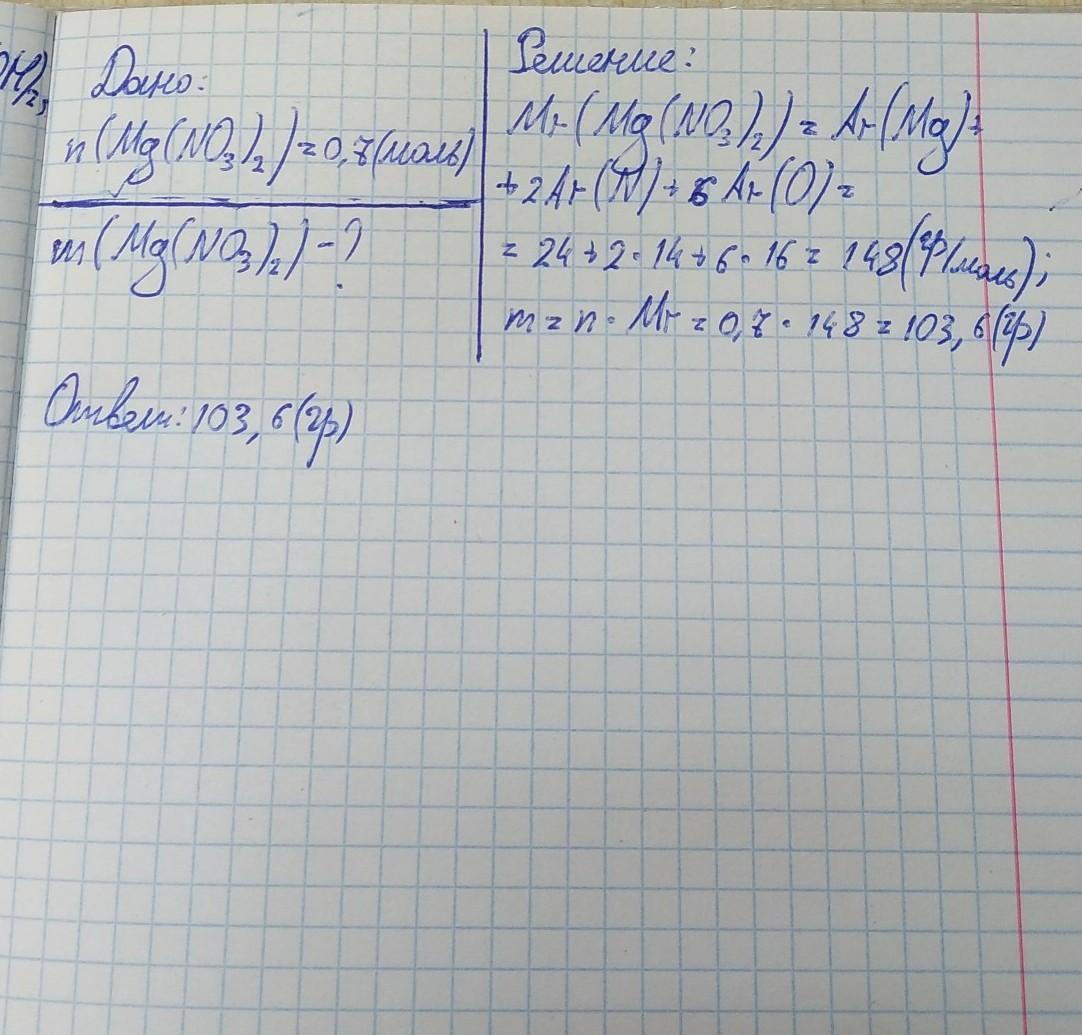 Дано:
n(Mg(NO₃)₂)=0,7(моль)
m(Mg(NO₃)₂)-?
Решение:
Mr(Mg(NO₃)₂)=Ar(Mg)+
+2Ar(N)+6Ar(O)=
=24+2·14+6·16=148(гр/моль);
m=n·Mr=0,7·148=103,6(гр)
Ответ:103,6(гр)